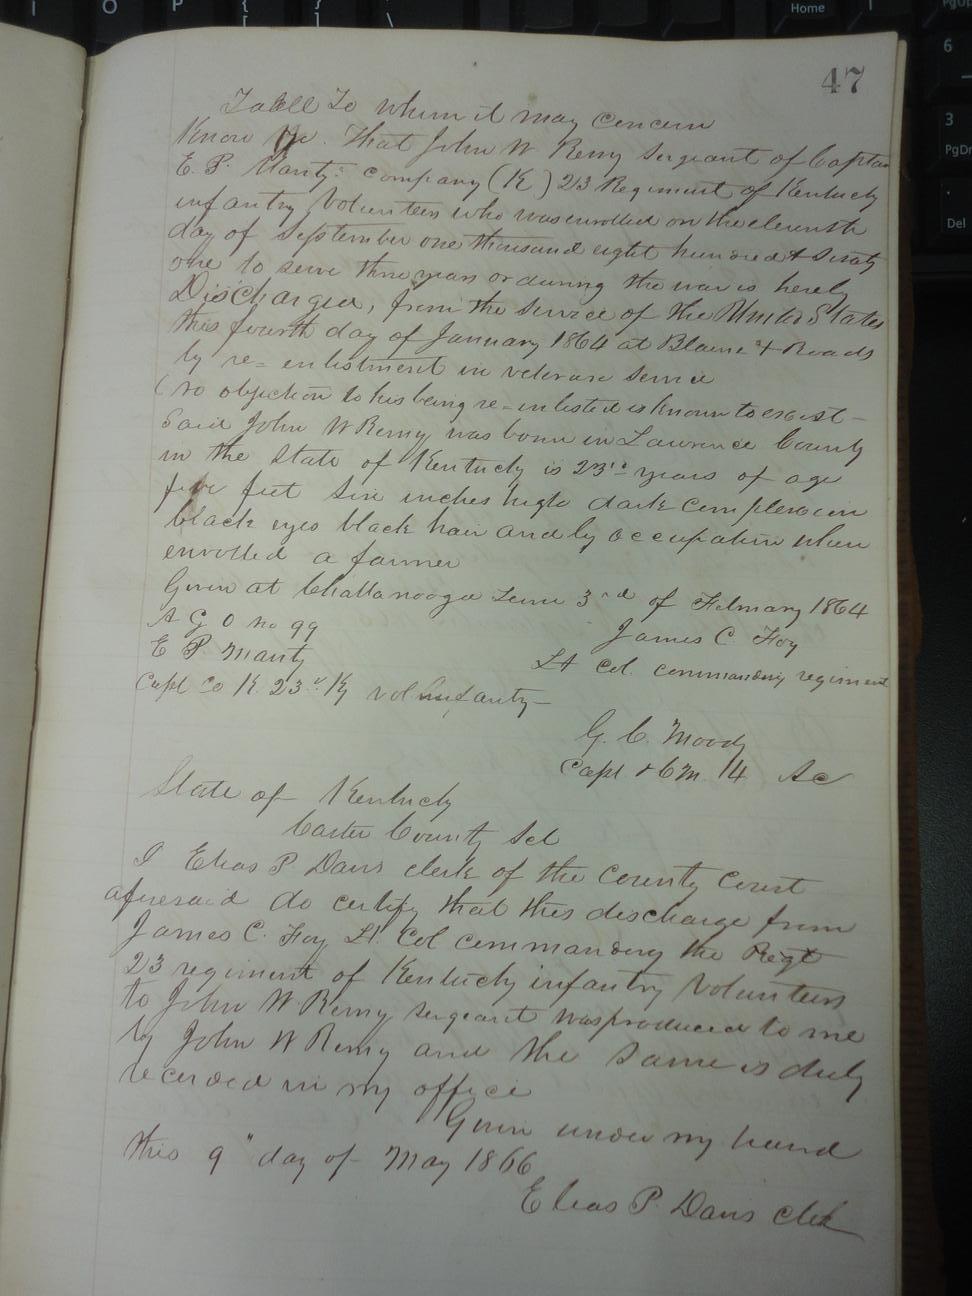 O P { [ } ] \ Home PgUp
6
3 PgDn
. Del
47
To all To whom it may Concern
Know Ye. That John W Remy Sergeant of Captain
E. P. Mauty's company (K) 23 Regiment of Kentucky
infantry Volunteers who was enrolled on the eleventh
day of September one thousand eight hundred & Sixty
one to serve three years or during the war is hereby
Discharged, from the Service of the United States
this fourth day of January 1864 at Blaine + Roads
by re=enlistment in veteran Service
(no objection to his being re=enlisted is known to exist—
Said John W Remy was born in Lawrence County
in the State of Kentucky is 23 years of age
five feet Six inches high dark complexion
black eyes black hair and by occupation when
enrolled a farmer
Given at Chattanooga Tenn 3rd of February 1864
A G O no 99
James C Foy
E P Mauty
Lt Col. commanding regiment
Capt Co K. 23d Ky vol infantry—
G. C. Moody
Capt & C M. 14
State of Kentucky
Carter County Sct
I Elias P Davis clerk of the County Court
aforesaid do certify that this discharge from
James C. Foy Lt. Col commanding the Regt
23 regiment of Kentucky infantry Volunteers
to John W Remy Sergeant was produced to me
by John W Remy and the Same is duly
recorded in my office
Given under my hand
this 9" day of May 1866
Elias P. Davis Clerk